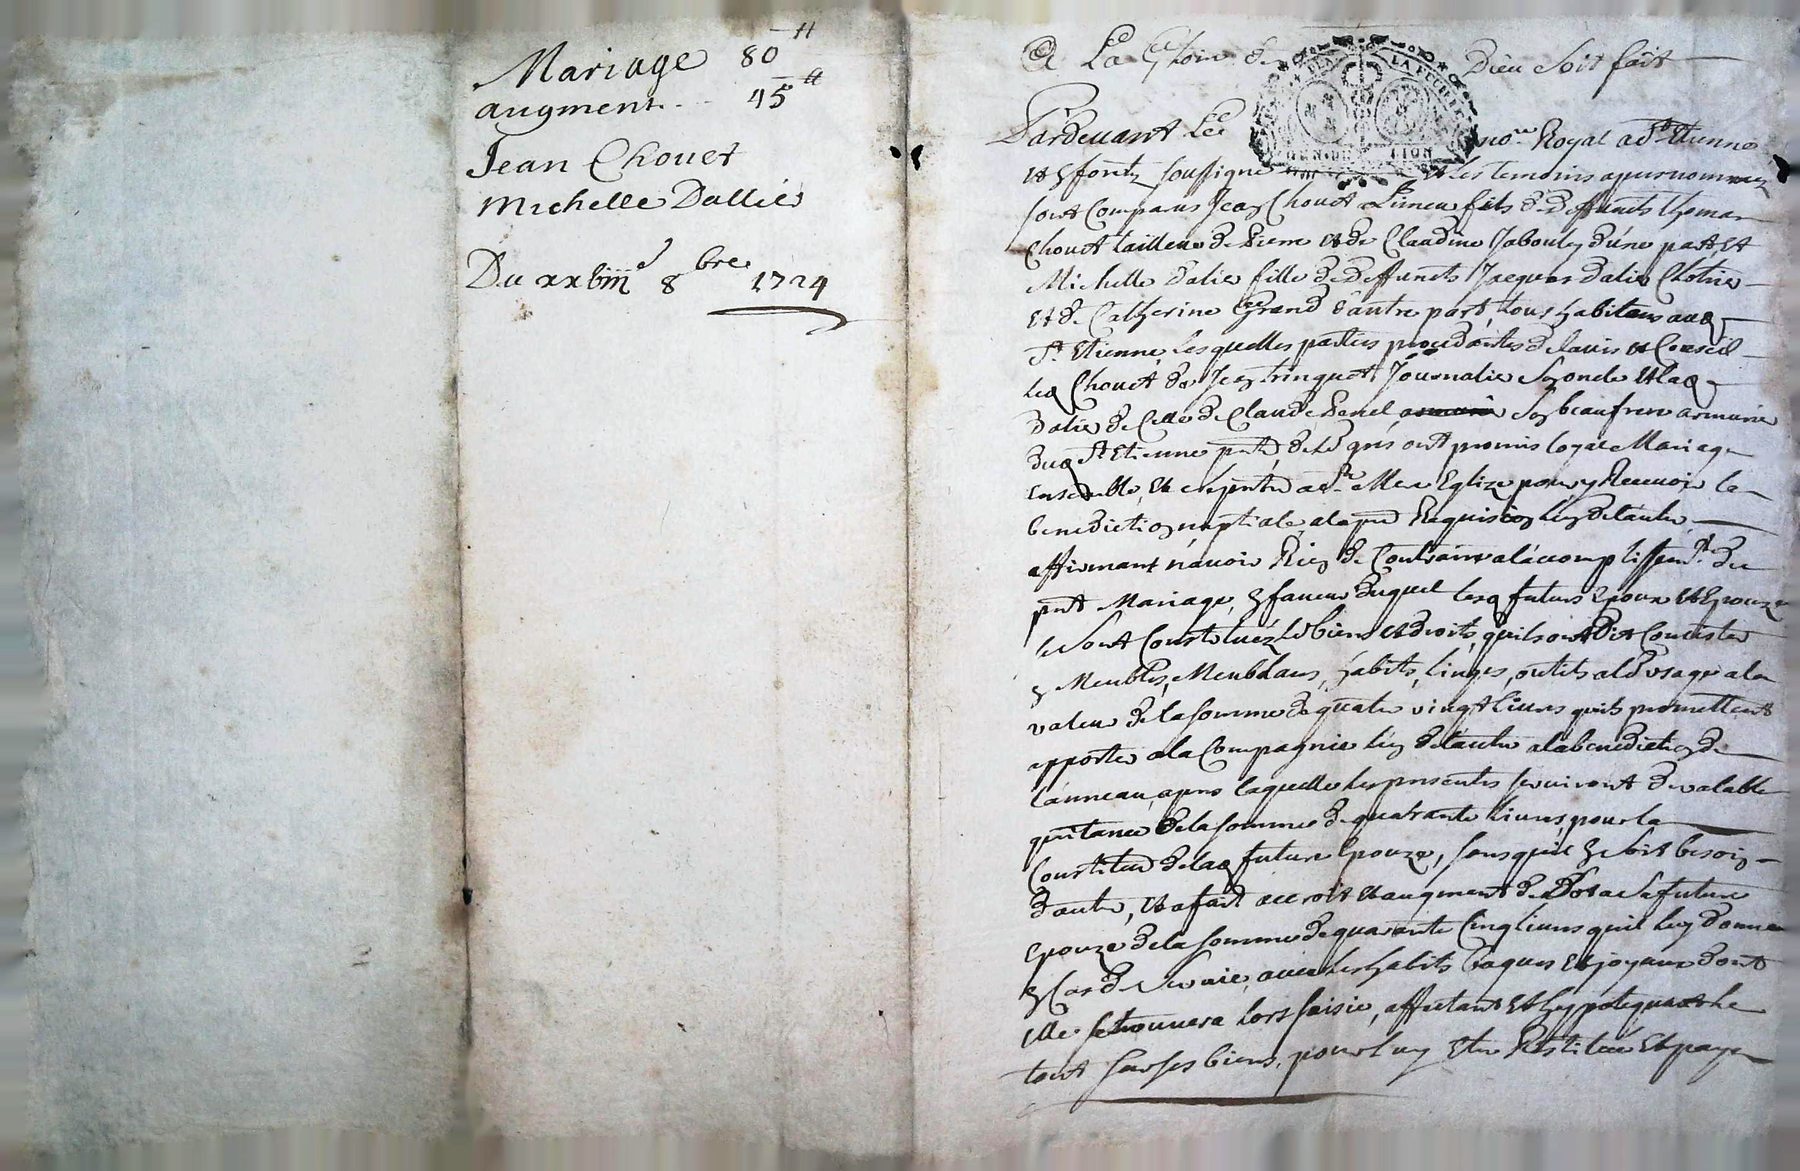 Mariage 80 ₶
augment. . . 45 ₶
Jean Chouet
Michelle Dallier
Du xxviii^e 8^bre 1724
A La Gloire de Dieu soit fait
Pardevant Le no.^re Royal a S^t Etienne
en forêtz soussigné et les temoins apres nommez
sont Comparus Jean Chouet fils de deffunts Thomas
Chouet tailleur de Pierre et de Claudine Jabouley d'une part, et
Michelle dalier fille de deffuncts Jacques dalier Clotrier
et de Catherine Grand d'autre part, tous habitans aud
S^t Etienne, lesquelles parties procedantes de lavis et Conseil
led Chouet de Jean trinquet Journalier son oncle et lad
dalier de Celle de Claude Penel son beaufrere armurier
dud S^t Etienne p^nts, de le gré ont promis loyal Mariage
ensemble, et se p^nter a S^te Mere Eglize pour y Recevoir la
benediction nuptiale, ala p^re Requisition l'un de l'autre
affirmant n'avoir Rien de Contraire al'accomplissem^t. du
p^nt Mariage, en faveur duquel lesd futurs Epoux et Epouze
se sont Constituéz les biens et droits, quils ont dit Concister
en Meubles, Meublans, habits, linges, outils a leur usage a la
valeur de la somme de quatre vingt livres quils promettent
apporter a la Compagnie l'un de l'autre a la benediction de
l'anneau, apres laquelle les presentes serviront de valable
quitance de la somme de quarante livres, pour la
Constitu^on de lad future Epouze, sans quil en soit besoin
d'autre, et a fait accroit et augment de Dot a sa future
Epouze de la somme de quarante Cinq livres quil luy donne
en Cas de survie, avec les habits bagues et joyaux dont
elle se trouvera lors saisie, affectant et hypotequant le
tout sur ses biens, pour luy Etre Restitué et payé